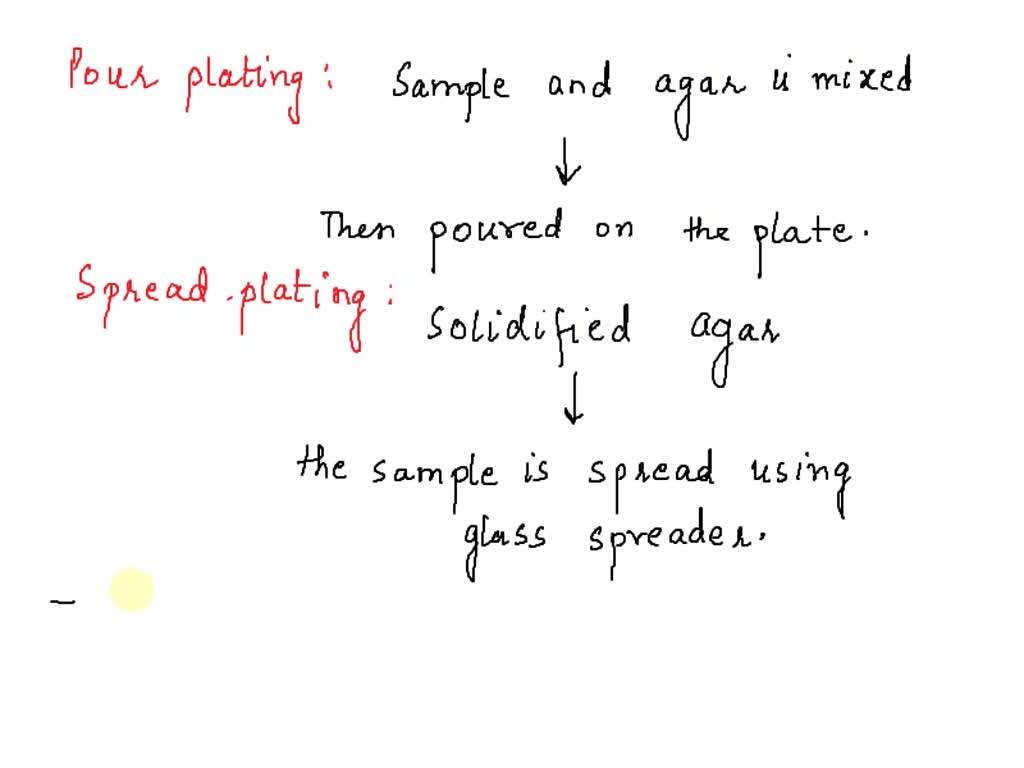 Pour plating: Sample and agar is mixed
Then poured on the plate.
Spread plating: Solidified agar
the sample is spread using
glass spreader.